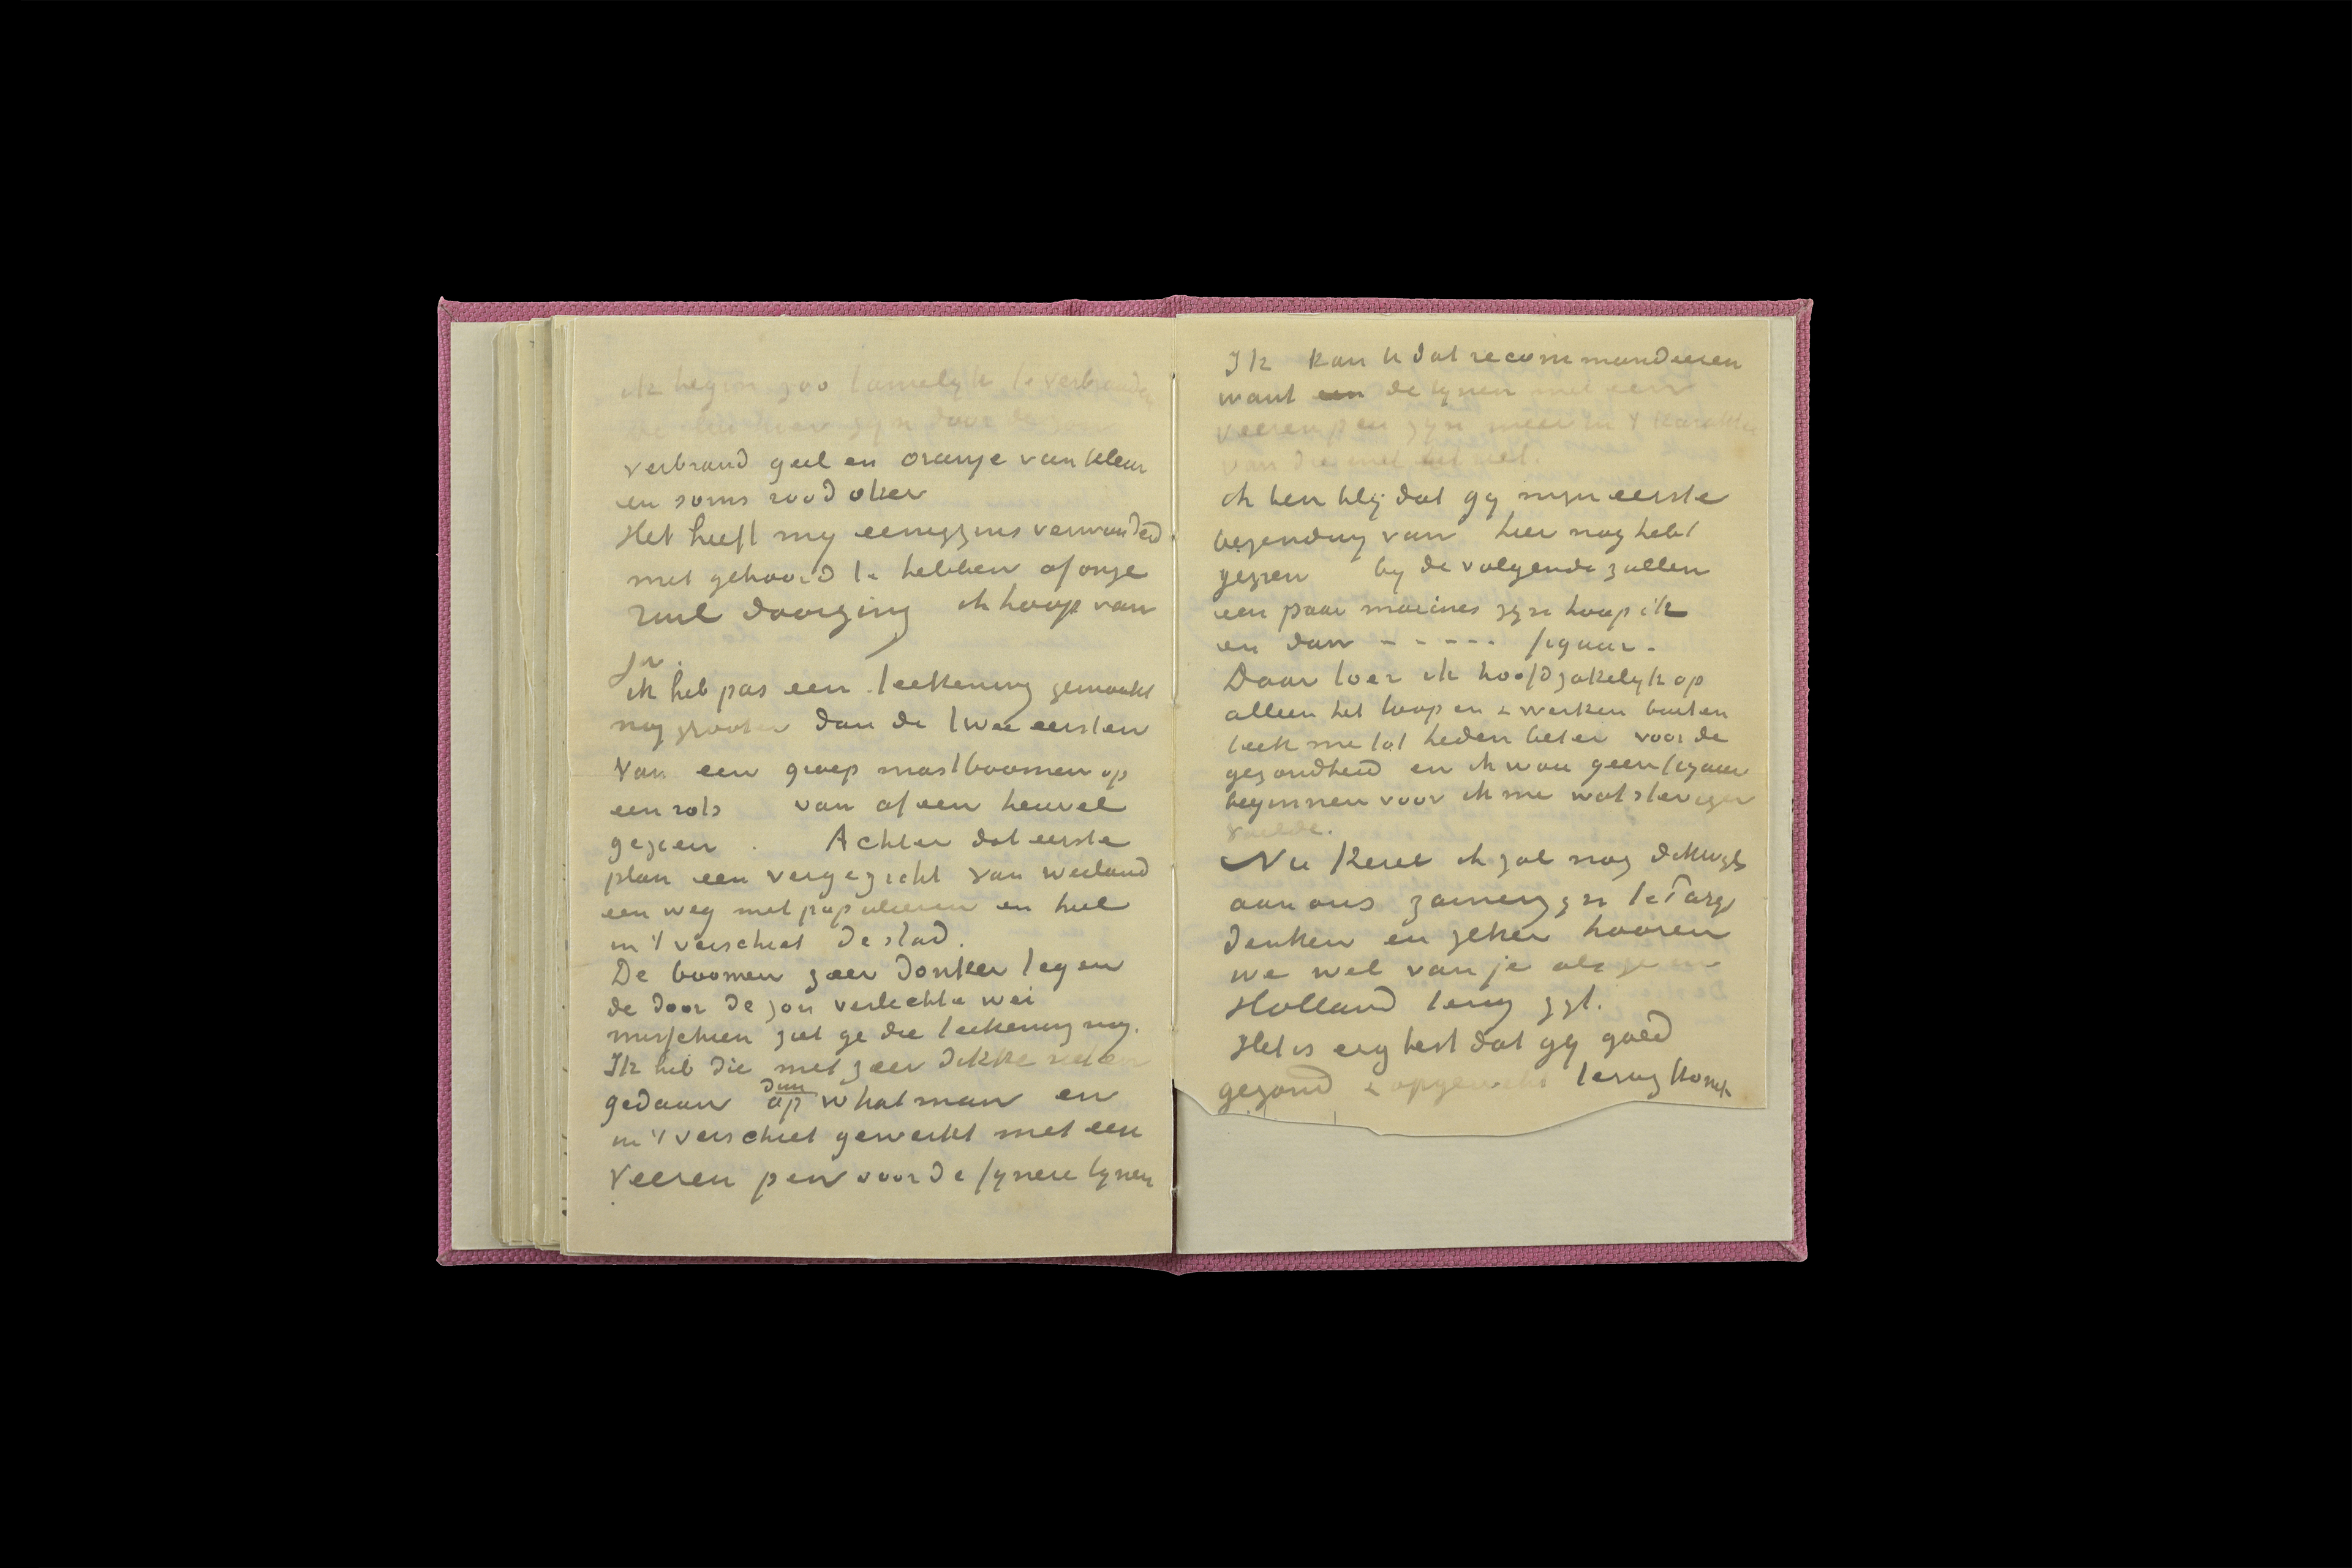 ik begin zoo tamelyk te verbranden
de lui hier zyn door de zon
verbrand geel en oranje van kleur
en soms rood oker
Het heeft my eenigzins verwonderd
niet gehoord te hebben of onze
ruil doorging ik hoop van
ja.
ik heb pas een teekening gemaakt
nog grooter dan de twee eersten
van een groep mastboomen op
een rots van af een heuvel
gezien. Achter dat eerste
plan een vergezicht van weiland
een weg met populieren en heel
in 't verschiet de stad.
De boomen zeer donker tegen
de door de zon verlichte wei
misschien ziet ge die teekening nog.
Ik heb die met zeer dikke rieten
gedaan op dun whatman en
in 't verschiet gewerkt met een
veeren pen voor de fynere lynen
Ik kan U dat recommandeeren
want een de lynen met een
veeren pen zyn meer in 't karakter
van die met het riet.
ik ben bly dat gy myn eerste
bezending van hier nog hebt
gezien by de volgende zullen
een paar marines zyn hoop ik
en dan - - - - - figuur.
Daar loer ik hoofdzakelyk op
alleen het loopen & werken buiten
leek me tot heden beter voor de
gezondheid en ik wou geen figuur
beginnen voor ik me wat steviger
voelde.
Nu kerel ik zal nog dikwyls
aan ons zamenzyn te Parys
denken en zeker hooren
we wel van je als ge in
Holland terug zyt.
Het is erg best dat gy goed
gezond & opgewekt terug komt